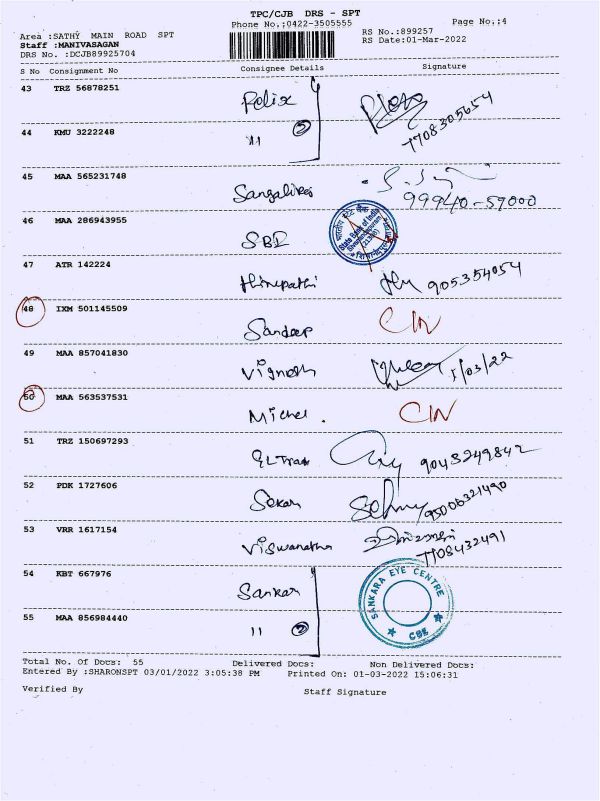 TPC/CJB DRS - SPT
Phone No.;0422-3505555 Page No.;4
Area :SATHY MAIN ROAD SPT RS No.:899257
Staff :MANIVASAGAN RS Date:01-Mar-2022
DRS No. :DCJB89925704
S No Consignment No Consignee Details Signature
43 TRZ 56878251 Felix
7708305654
44 KMU 3222248 11 2
45 MAA 565231748
99940-59000
46 MAA 286943955 SBI State Bank of India
47 ATR 142224 thirupathi 905354054
48 IXM 501145509 Sandeep CIN
49 MAA 857041830 Vignesh 1/03/22
50 MAA 563537531 Michel. CIN
51 TRZ 150697293 9043249842
52 PDK 1727606 Sekar 95006321490
53 VRR 1617154 Viswanathan 7708432491
54 KBT 667976 Sankar SANKARA EYE CENTRE
CBE
55 MAA 856984440 11 2
Total No. Of Docs: 55 Delivered Docs: Non Delivered Docs:
Entered By :SHARONSPT 03/01/2022 3:05:38 PM Printed On: 01-03-2022 15:06:31
Verified By Staff Signature